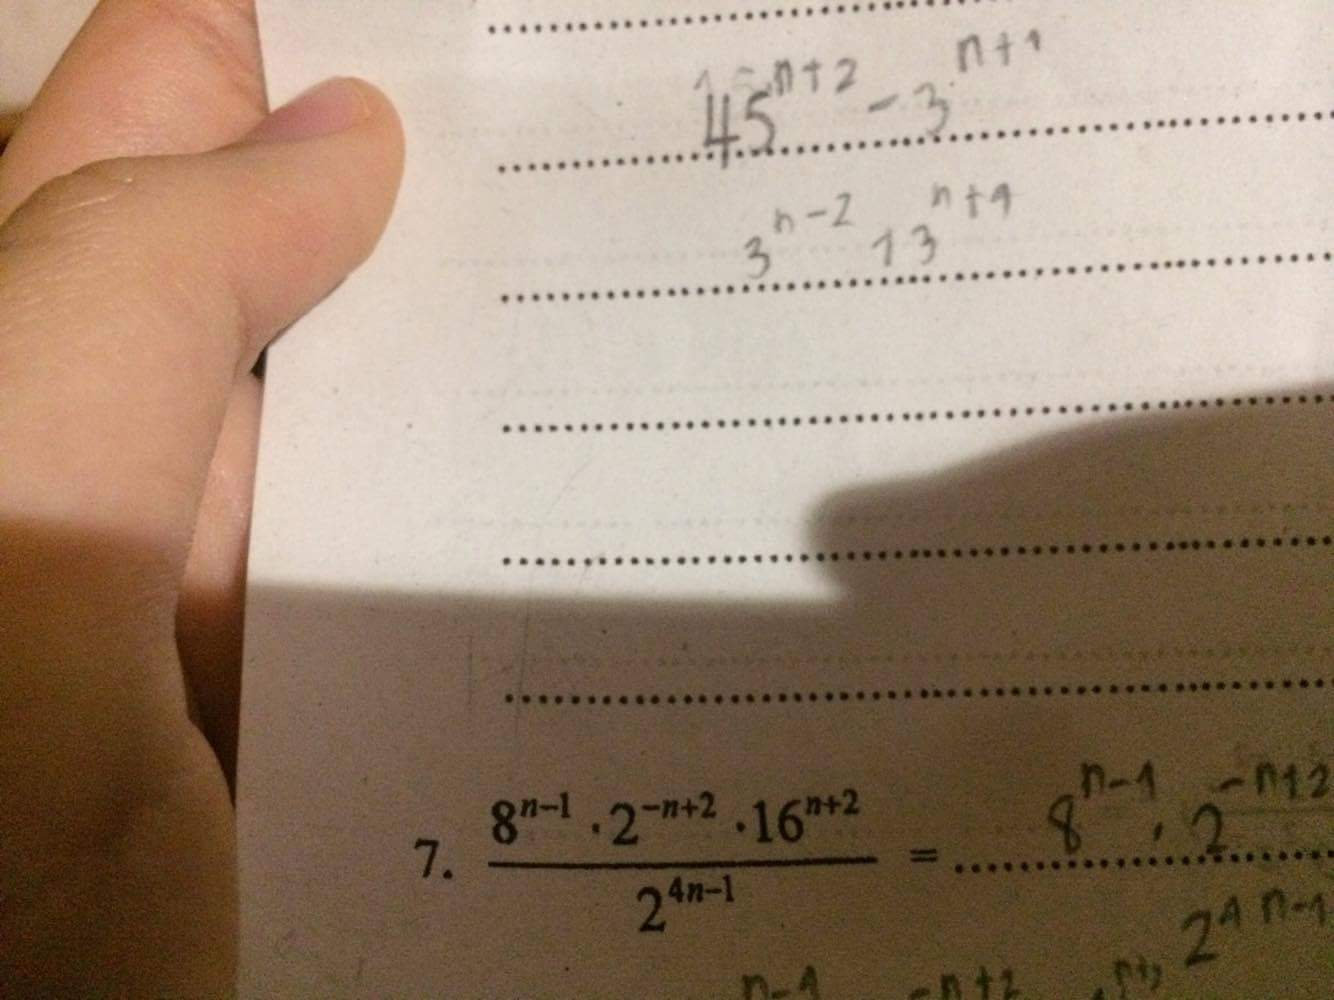 45ⁿ⁺² - 3ⁿ⁺¹
3ⁿ⁻² 13ⁿ⁺⁴
7. 8ⁿ⁻¹ · 2⁻ⁿ⁺² · 16ⁿ⁺² / 2⁴ⁿ⁻¹ = 8ⁿ⁻¹ · 2⁻ⁿ⁺²
2⁴ⁿ⁻¹
n-1 -n+2